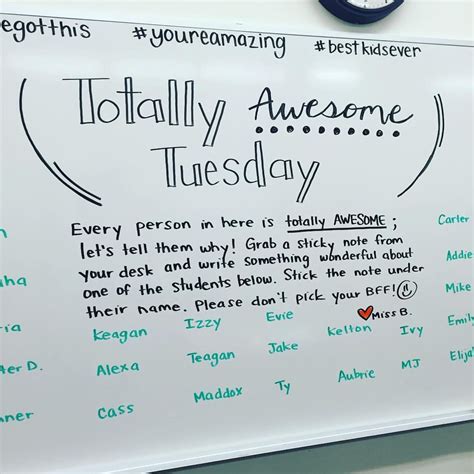 egotthis #youreamazing #bestkidsever
Totally Awesome
Tuesday
Every person in here is totally AWESOME ;
let's tell them why! Grab a sticky note from
your desk and write something wonderful about
one of the students below. Stick the note under
their name. Please don't pick your BFF!
Miss B.
Carter
Addie
Mike
Keagan Izzy Evie Kelton Ivy Emily
Alexa Teagan Jake Aubrie MJ Elija
Cass Maddox Ty